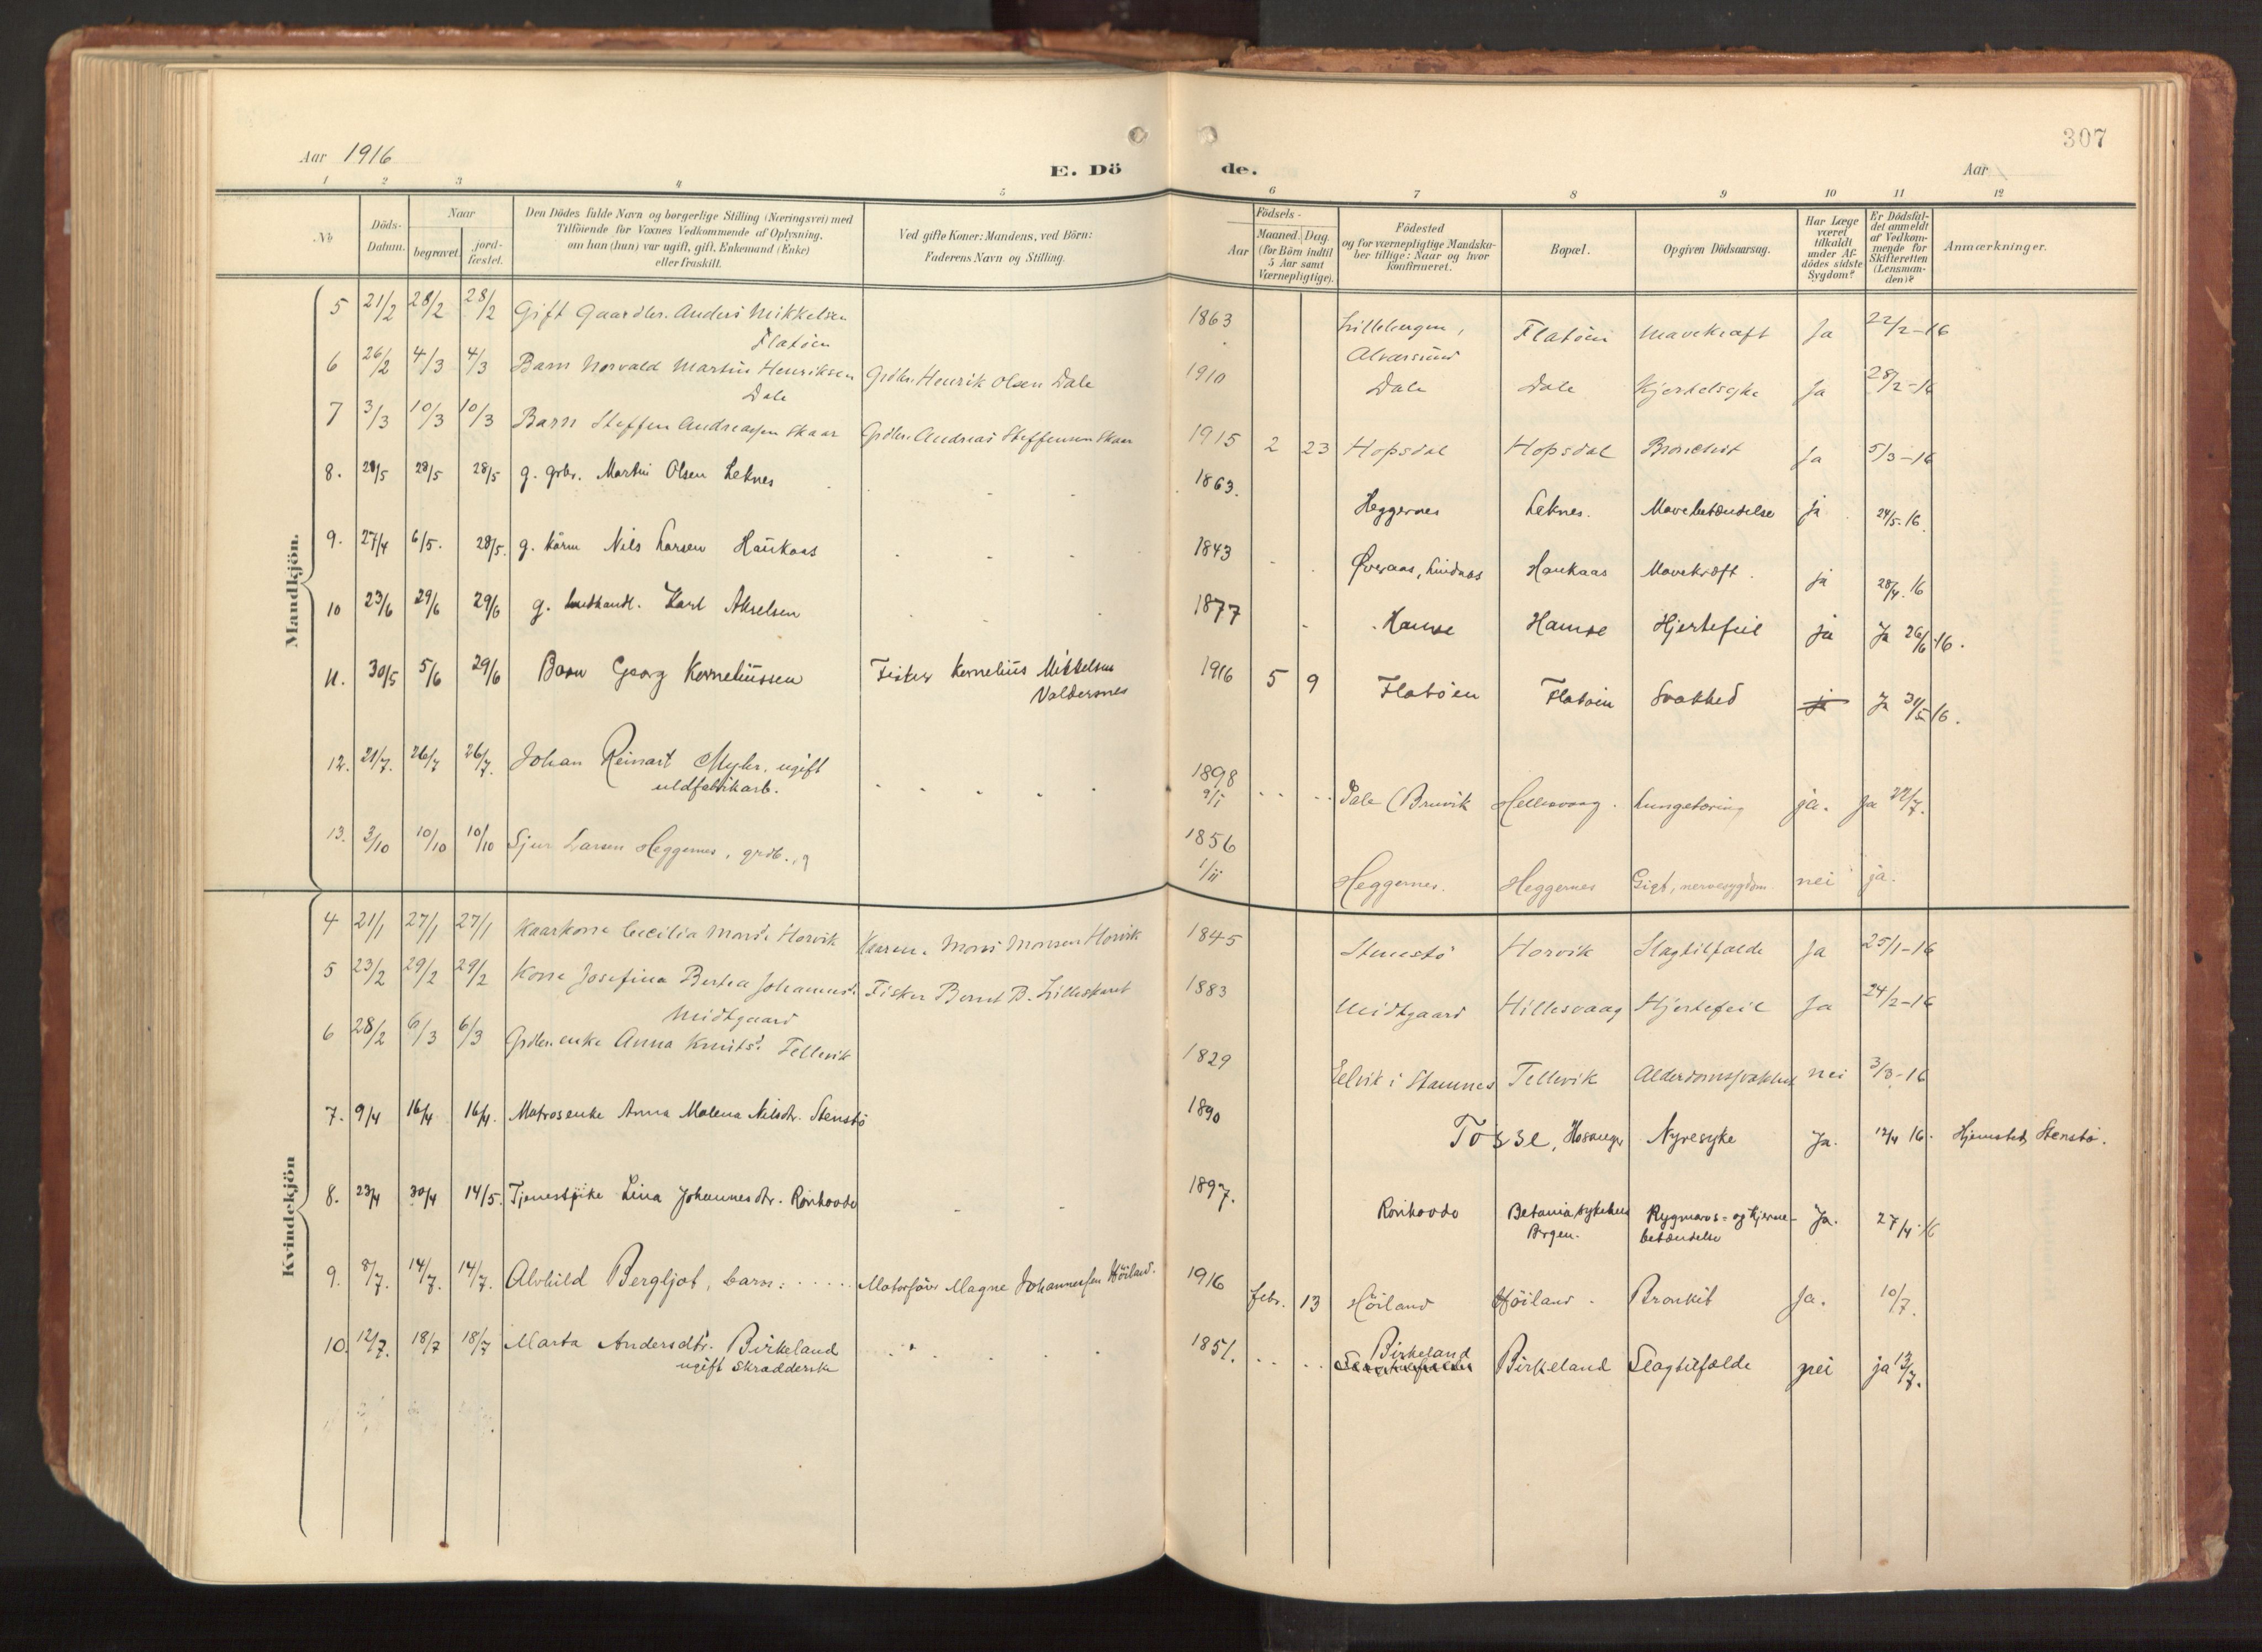 307
Aar 1916
E. Dö de.
Aar
1 2 3 4 5 6 7 8 9 10 11 12
No
Döds-
Datum.
Naar
begravet.
jord-
fæstet.
Den Dödes fulde Navn og borgerlige Stilling (Næringsvei) med
Tilföiende for Voxnes Vedkommende af Oplysning,
om han (hun) var ugift, gift, Enkemand (Enke)
eller fraskilt.
Ved gifte Koner: Mandens, ved Börn:
Faderens Navn og Stilling.
Födsels-
Aar
Maaned. Dag.
(for Börn indtil
5 Aar samt
Værnepligtige).
Födested
og for værnepligtige Mandska-
ber tillige: Naar og hvor
konfirmeret.
Bopæl.
Opgiven Dödsaarsag.
Har Læge
været
tilkaldt
under Af-
dödes sidste
Sygdom?
Er Dödsfal-
det anmeldt
af Vedkom-
mende for
Skifteretten
(Lensman-
den)?
Anmærkninger.
Mandkjön.
5 21/2 28/2 28/2 Gift Gaardbr. Anders Mikkelsen 1863 Lillebergen, Flatöen Mavekræft Ja 22/2-16
Flatöen Alversund
6 26/2 4/3 4/3 Barn Norvald Martin Henriksen Grdbr. Henrik Olsen Dale 1910 Dale Dale Kjertelsyke Ja 28/2-16
Dale
7 3/3 10/3 10/3 Barn Steffen Andreassen Skaar Grdbr. Andreas Steffensen Skaar 1915 2 23 Hopsdal Hopsdal Bronchit Ja 5/3-16
8. 21/5 28/5 28/5 g. grbr. Martin Olsen Leknes 1863. Heggernes Leknes. Mavebetændelse ja 24/5.16
9. 27/4 6/5. 28/5. g. kårm Nils Larsen Haukaas 1843 Øveraas, Lindaas Haukaas Mavekræft. ja 28/4.16
10 23/6 29/6 29/6 g. landhandl. Karl Akselsen 1877 Hamre Hamre Hjertefeil ja Ja 26/6 16.
11. 30/5 5/6 29/6 Barn Georg Korneliussen Fisker Kornelius Mikkelsen 1916 5 9 Flatöen Flatöen Svakhed ja Ja 31/5 16.
Valdersnes
12. 21/7. 26/7 26/7. Johan Reinart Myhr, ugift 1898 Dale (Bruvik Hellesvaag. Lungetæring ja. Ja 22/7.
uldfabrikarb. 9/1
13. 3/10 10/10 10/10 Sjur Larsen Heggernes, grdb., g 1856 Heggernes. Heggernes Gigt, nervesygdom nei ja.
1/11
Kvindekjön
4 21/1 27/1 27/1 Kaarkone Cecilia Monsd. Horvik Kaarm. Mons Monsen Horvik 1845 Stenestö Horvik Slagtilfælde Ja 25/1-16
5 23/2 29/2 29/2 Kone Josefina Bertea Johannesd. Fisker Bernt B. Lilleskaret 1883 Midtgaard Hillesvaag Hjertefeil Ja 24/2-16
Midtgaard
6 28/2 6/3 6/3 Grdbr.enke Anna Knutsd. Tellevik 1829 Eelvik i Stamnes Tellevik Alderdomssvakhed nei 3/3-16
7. 9/4 16/4 16/4. Matrosenke Anna Malena Nilsdr. Stenstö 1890 Tosse, Hosanger Nyresyke Ja. 12/4 16. Hjemsted, Stenstö.
8. 23/4 30/4 14/5. Tjenestpike Lina Johannesdr. Rönhovde 1897. Rönhovde Betania sykehus Rygmarvs- og hjerne- Ja. 27/4.16
Brgen. betændelse
9. 8/7. 14/7. 14/7. Alvhild Bergljot, barn: Motorförer Magne Johannessen Höiland. 1916 febr. 13 Höiland Höiland. Bronkit Ja. 10/7.
10. 12/7. 18/7 18/7 Marta Andersdtr. Birkeland 1851. Birkeland Birkeland Slagtilfælde nei ja 13/7.
ugift skrædderske